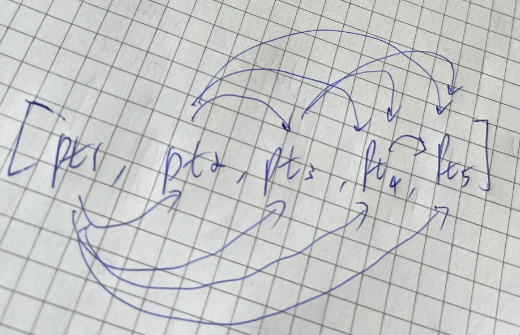 [pt1, pt2, pt3, pt4, pt5]